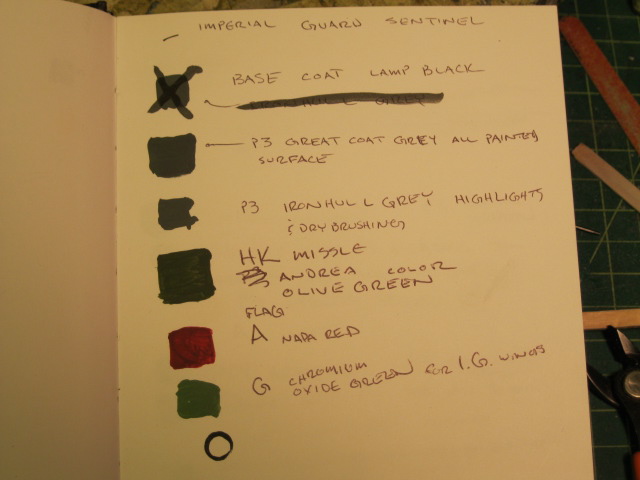 IMPERIAL GUARD SENTINEL
BASE COAT LAMP BLACK
P3 GREAT COAT GREY ALL PAINTED
SURFACE
P3 IRONHULL GREY HIGHLIGHTS
& DRYBRUSHING
HK MISSLE
ANDREA COLOR
OLIVE GREEN
FLAG
A NAPA RED
G CHROMIUM
OXIDE GREEN FOR I.G. WINGS